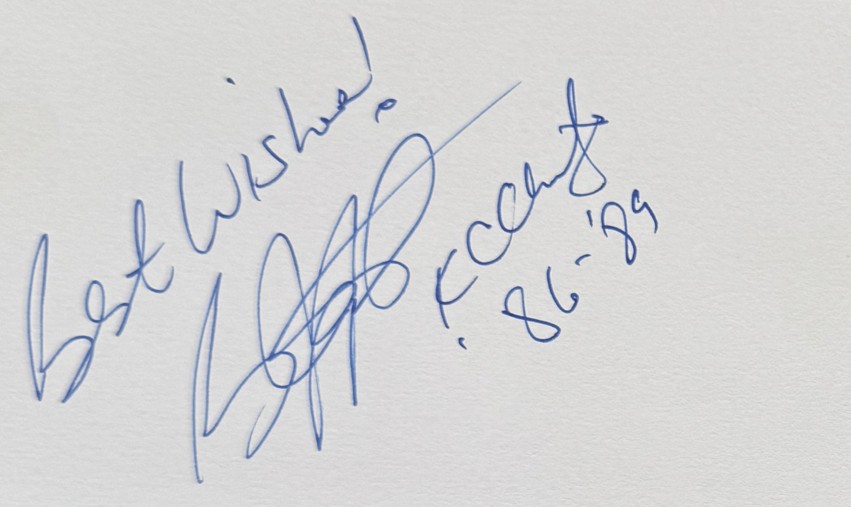 Best Wishes!
KC Chiefs
'86-'89